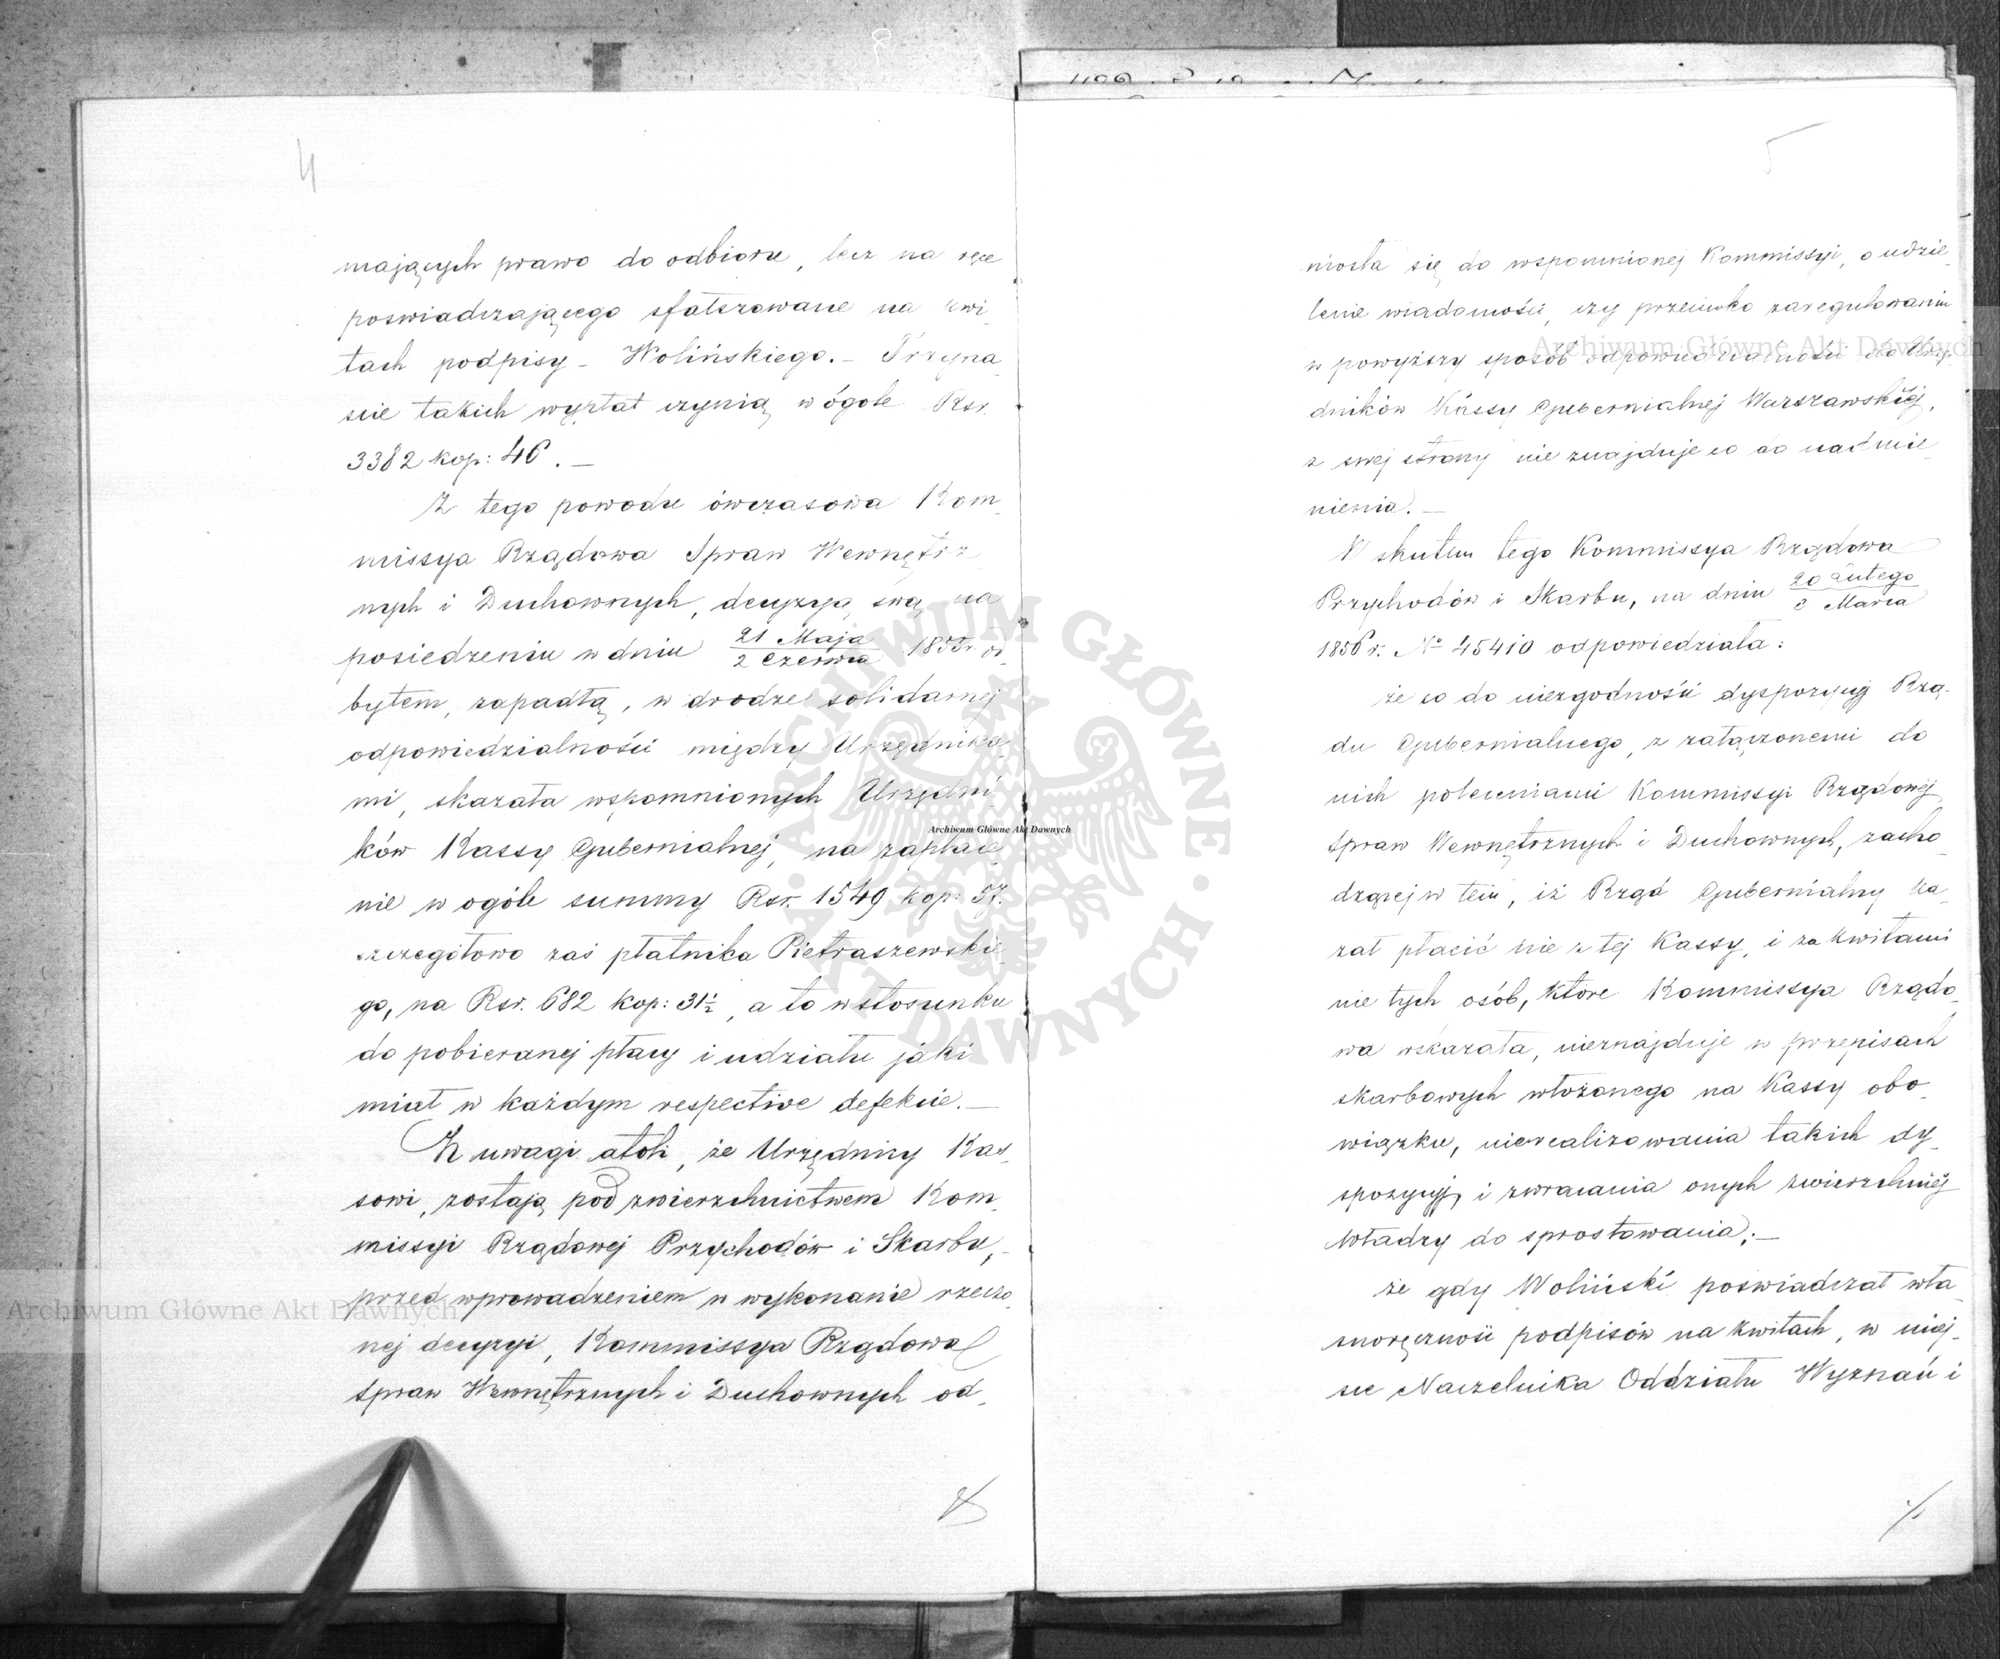 4
mających prawo do odbioru, lecz na ręce
poswiadczającego sfałszowane na kwi-
tach podpisy - Wolińskiego. -
sie takich wypłat czynią w ógole Rsr.
3382 kop: 46. -
Z tego powodu ówczasowa Kom-
missya Rządowa Spraw Wewnętrz-
nych i Duchownych, decyzyą swą na
posiedzeniu w dniu 21 Maja / 2 Czerwca 1855 r. od-
bytem, zapadłą, w drodze solidarnej
odpowiedzialności między Urzędnika-
mi, skazała wspomnionych Urzędni-
ków Kassy Gubernialnej, na zapłace-
nie w ogóle summy Rsr. 1549 kop: 57.
szczegółowo zaś płatnika Pietraszewskie-
go, na Rsr. 682 kop: 31½, a to w stosunku
do pobieranej płacy i udziału jaki
miał w każdym respective defekcie. -
Z uwagi atoli, że Urzędnicy Kas-
sowi, zostają pod zwierzchnictwem Kom-
missyi Rządowej Przychodów i Skarbu,
przed wprowadzeniem w wykonanie rzeczo-
nej decyzyi, Kommissya Rządowa
Spraw Wewnętrznych i Duchownych od-
5
niosła się do wspomnionej Kommissyi, o udzie-
lenie wiadomości, czy przeciwko zaregulowaniu
w powyższy sposób odpowiedzialności
dników Kassy Gubernialnej Warszawskiéj,
z swej strony nie znajduje co do nadmie-
nienia. -
W skutku tego Kommissya Rządowa
Przychodów i Skarbu, na dniu 20 Lutego / 3 Marca
1856 r. № 45410 odpowiedziała:
że co do niezgodności dyspozycyj Rzą-
du Gubernialnego, z załączonemi do
nich poleceniami Kommissyi Rządowej
Spraw Wewnętrznych i Duchownych, zacho-
dzącej w tem, iż Rząd Gubernialny ka-
zał płacić nie z tej Kassy, i za kwitami
nie tych osób, które Kommissya Rządo-
wa wskazała, nieznajduje w przepisach
skarbowych włożonego na Kassy obo-
wiązku, nierealizowania takich dy-
spozycyj, i zwracania onych zwierzchniéj
Władzy do sprostowania; -
że gdy Woliński poświadczał wła-
snoręczność podpisów na kwitach, w miej-
sce Naczelnika Oddziału Wyznań i
Archiwum Główne Akt Dawnych
Archiwum Główne Akt Dawnych
Archiwum Główne Akt Dawnych
ARCHIWUM GŁÓWNE AKT DAWNYCH